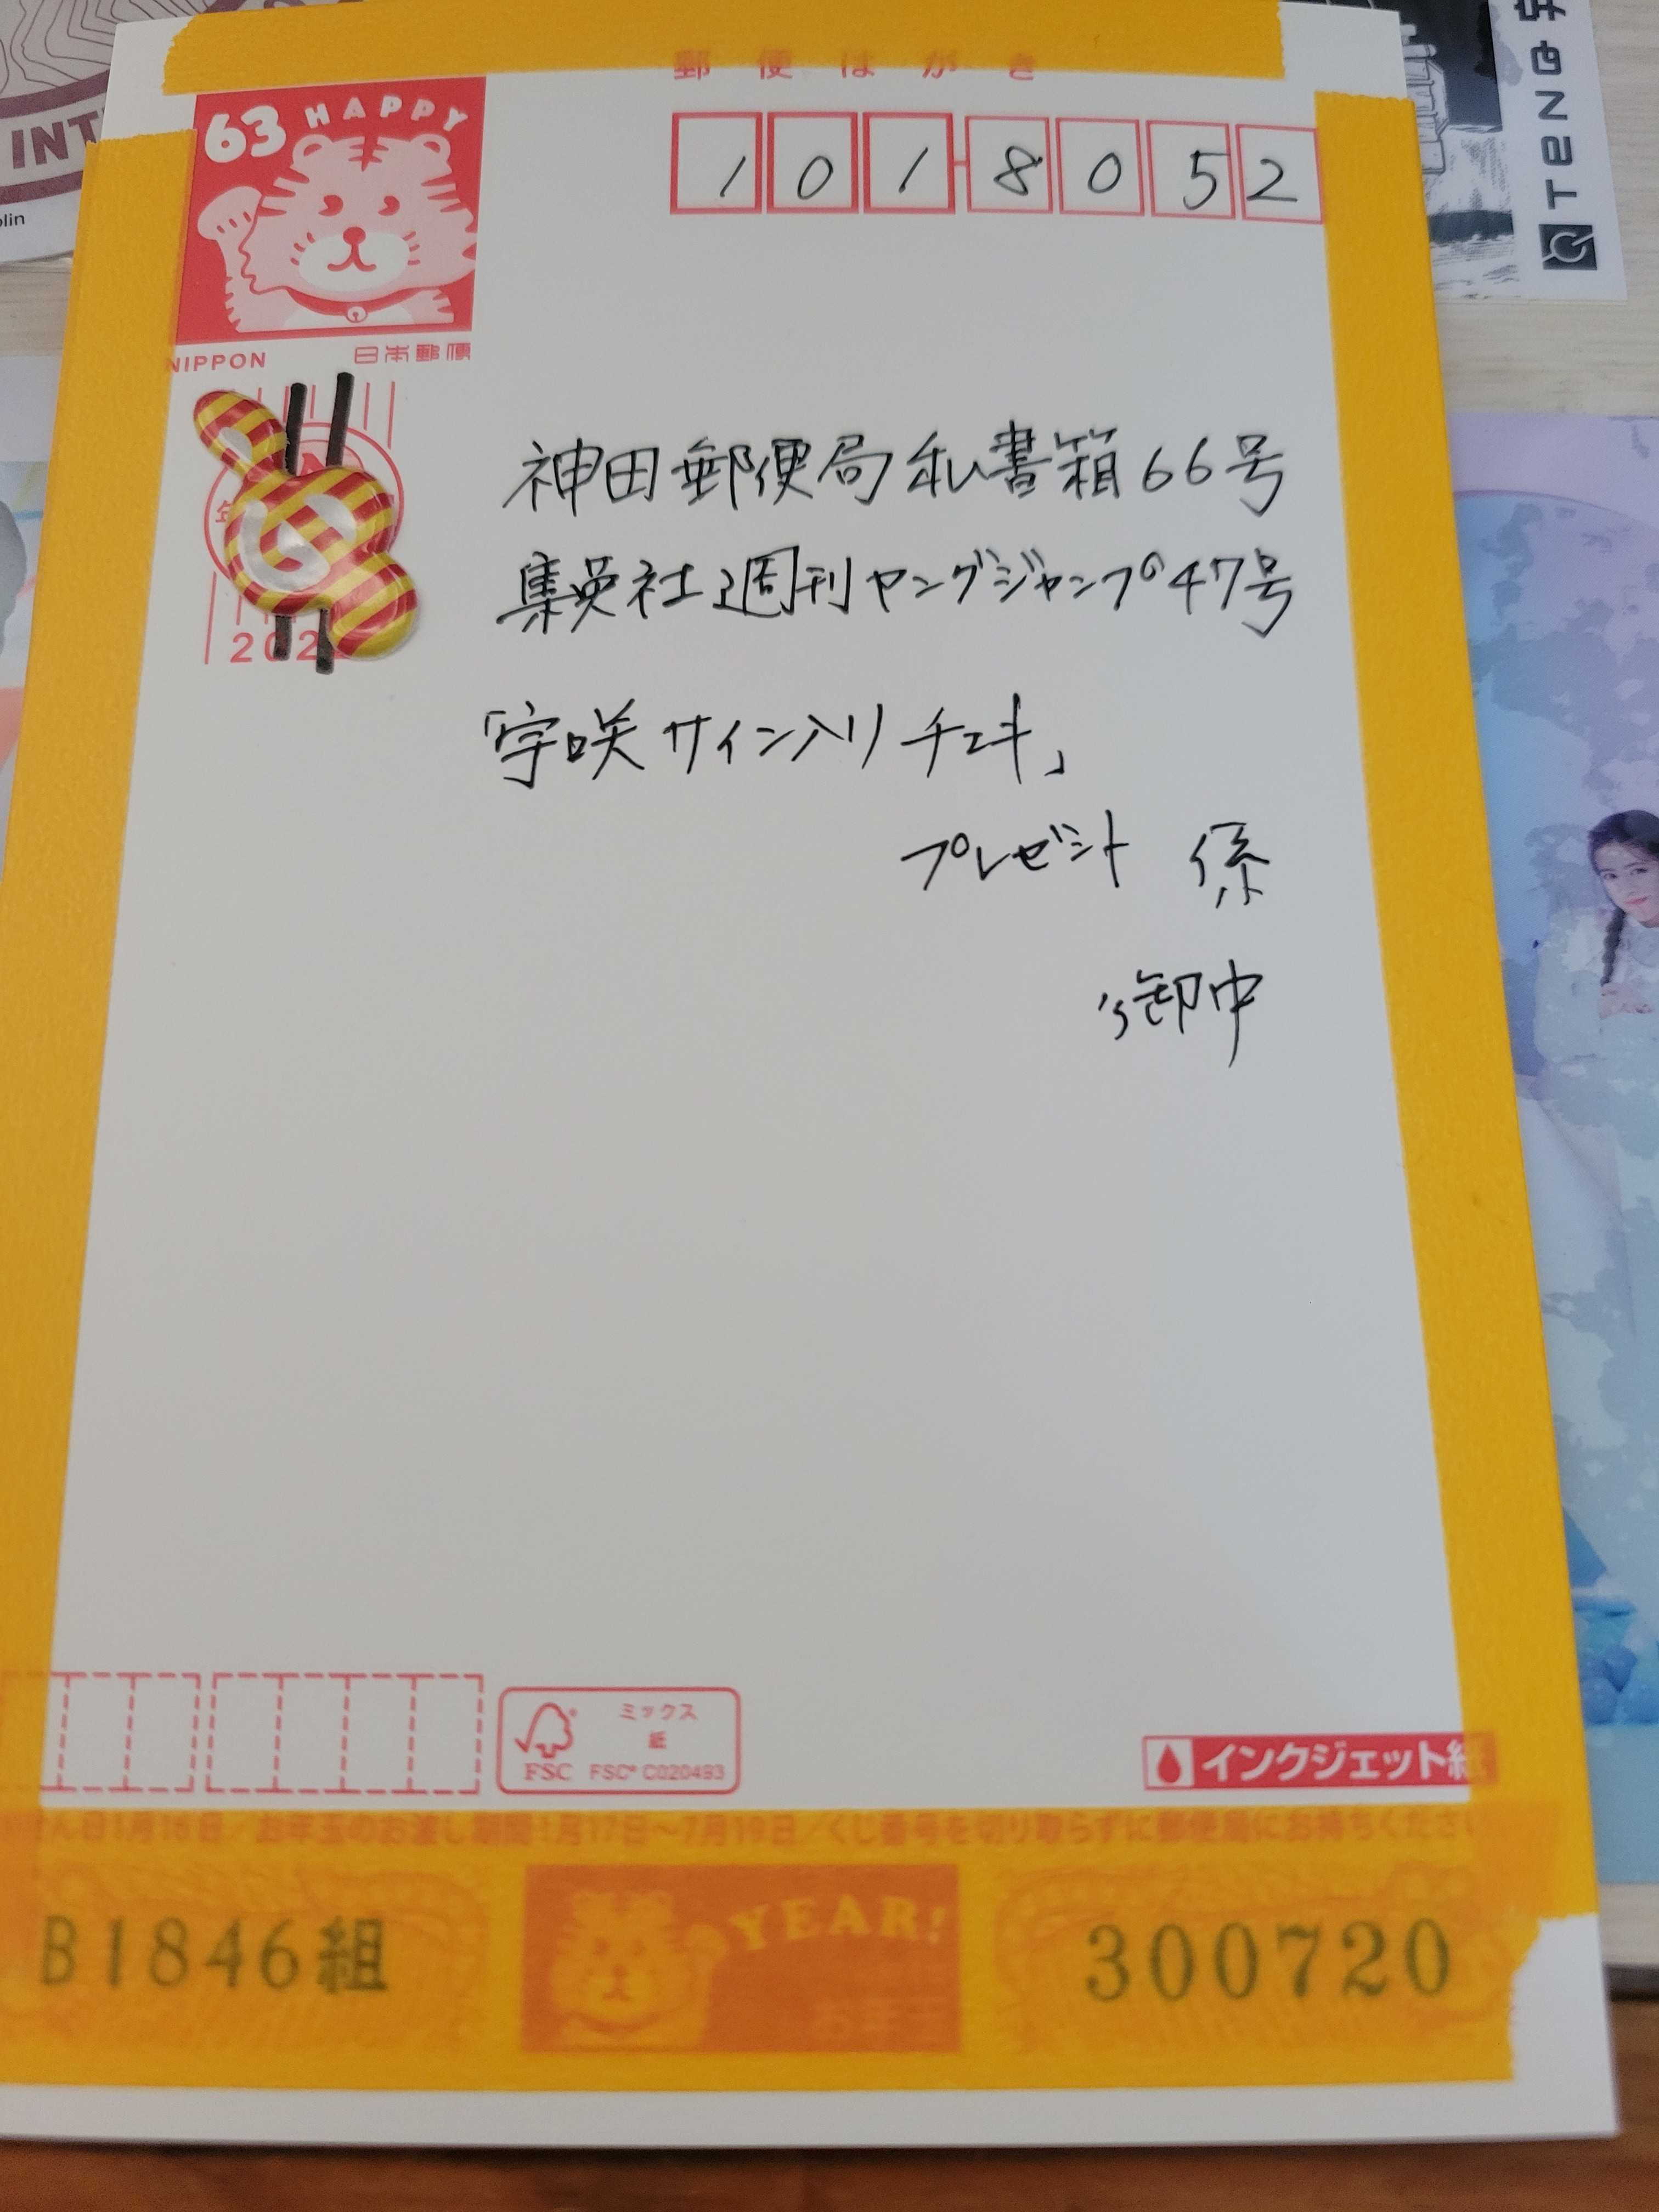 INT
lin
TENG
郵便はがき
63 HAPPY
1018052
NIPPON 日本郵便
神田郵便局私書箱66号
集英社週刊ヤングジャンプ47号
「宇咲サイン入りチェキ」
プレゼント 係
御中
ミックス
紙
FSC FSC® C020493
インクジェット紙
月16日/お年玉のお渡し期間1月17日〜7月19日/くじ番号を切り取らずに郵便局にお持ちくださ
B1846組
YEAR!
お年玉
300720